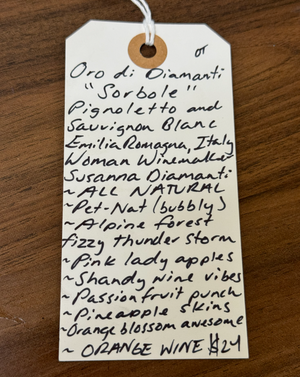 or
Oro di Diamanti
"Sorbole"
Pignoletto and
Sauvignon Blanc
Emilia Romagna, Italy
Woman Winemaker
Susanna Diamanti
~ ALL NATURAL
~ Pet-Nat (bubbly)
~ Alpine forest
fizzy thunder storm
~ Pink lady apples
~ Shandy wine vibes
~ Passionfruit punch
~ Pineapple skins
~ Orange blossom awesome
~ ORANGE WINE $24